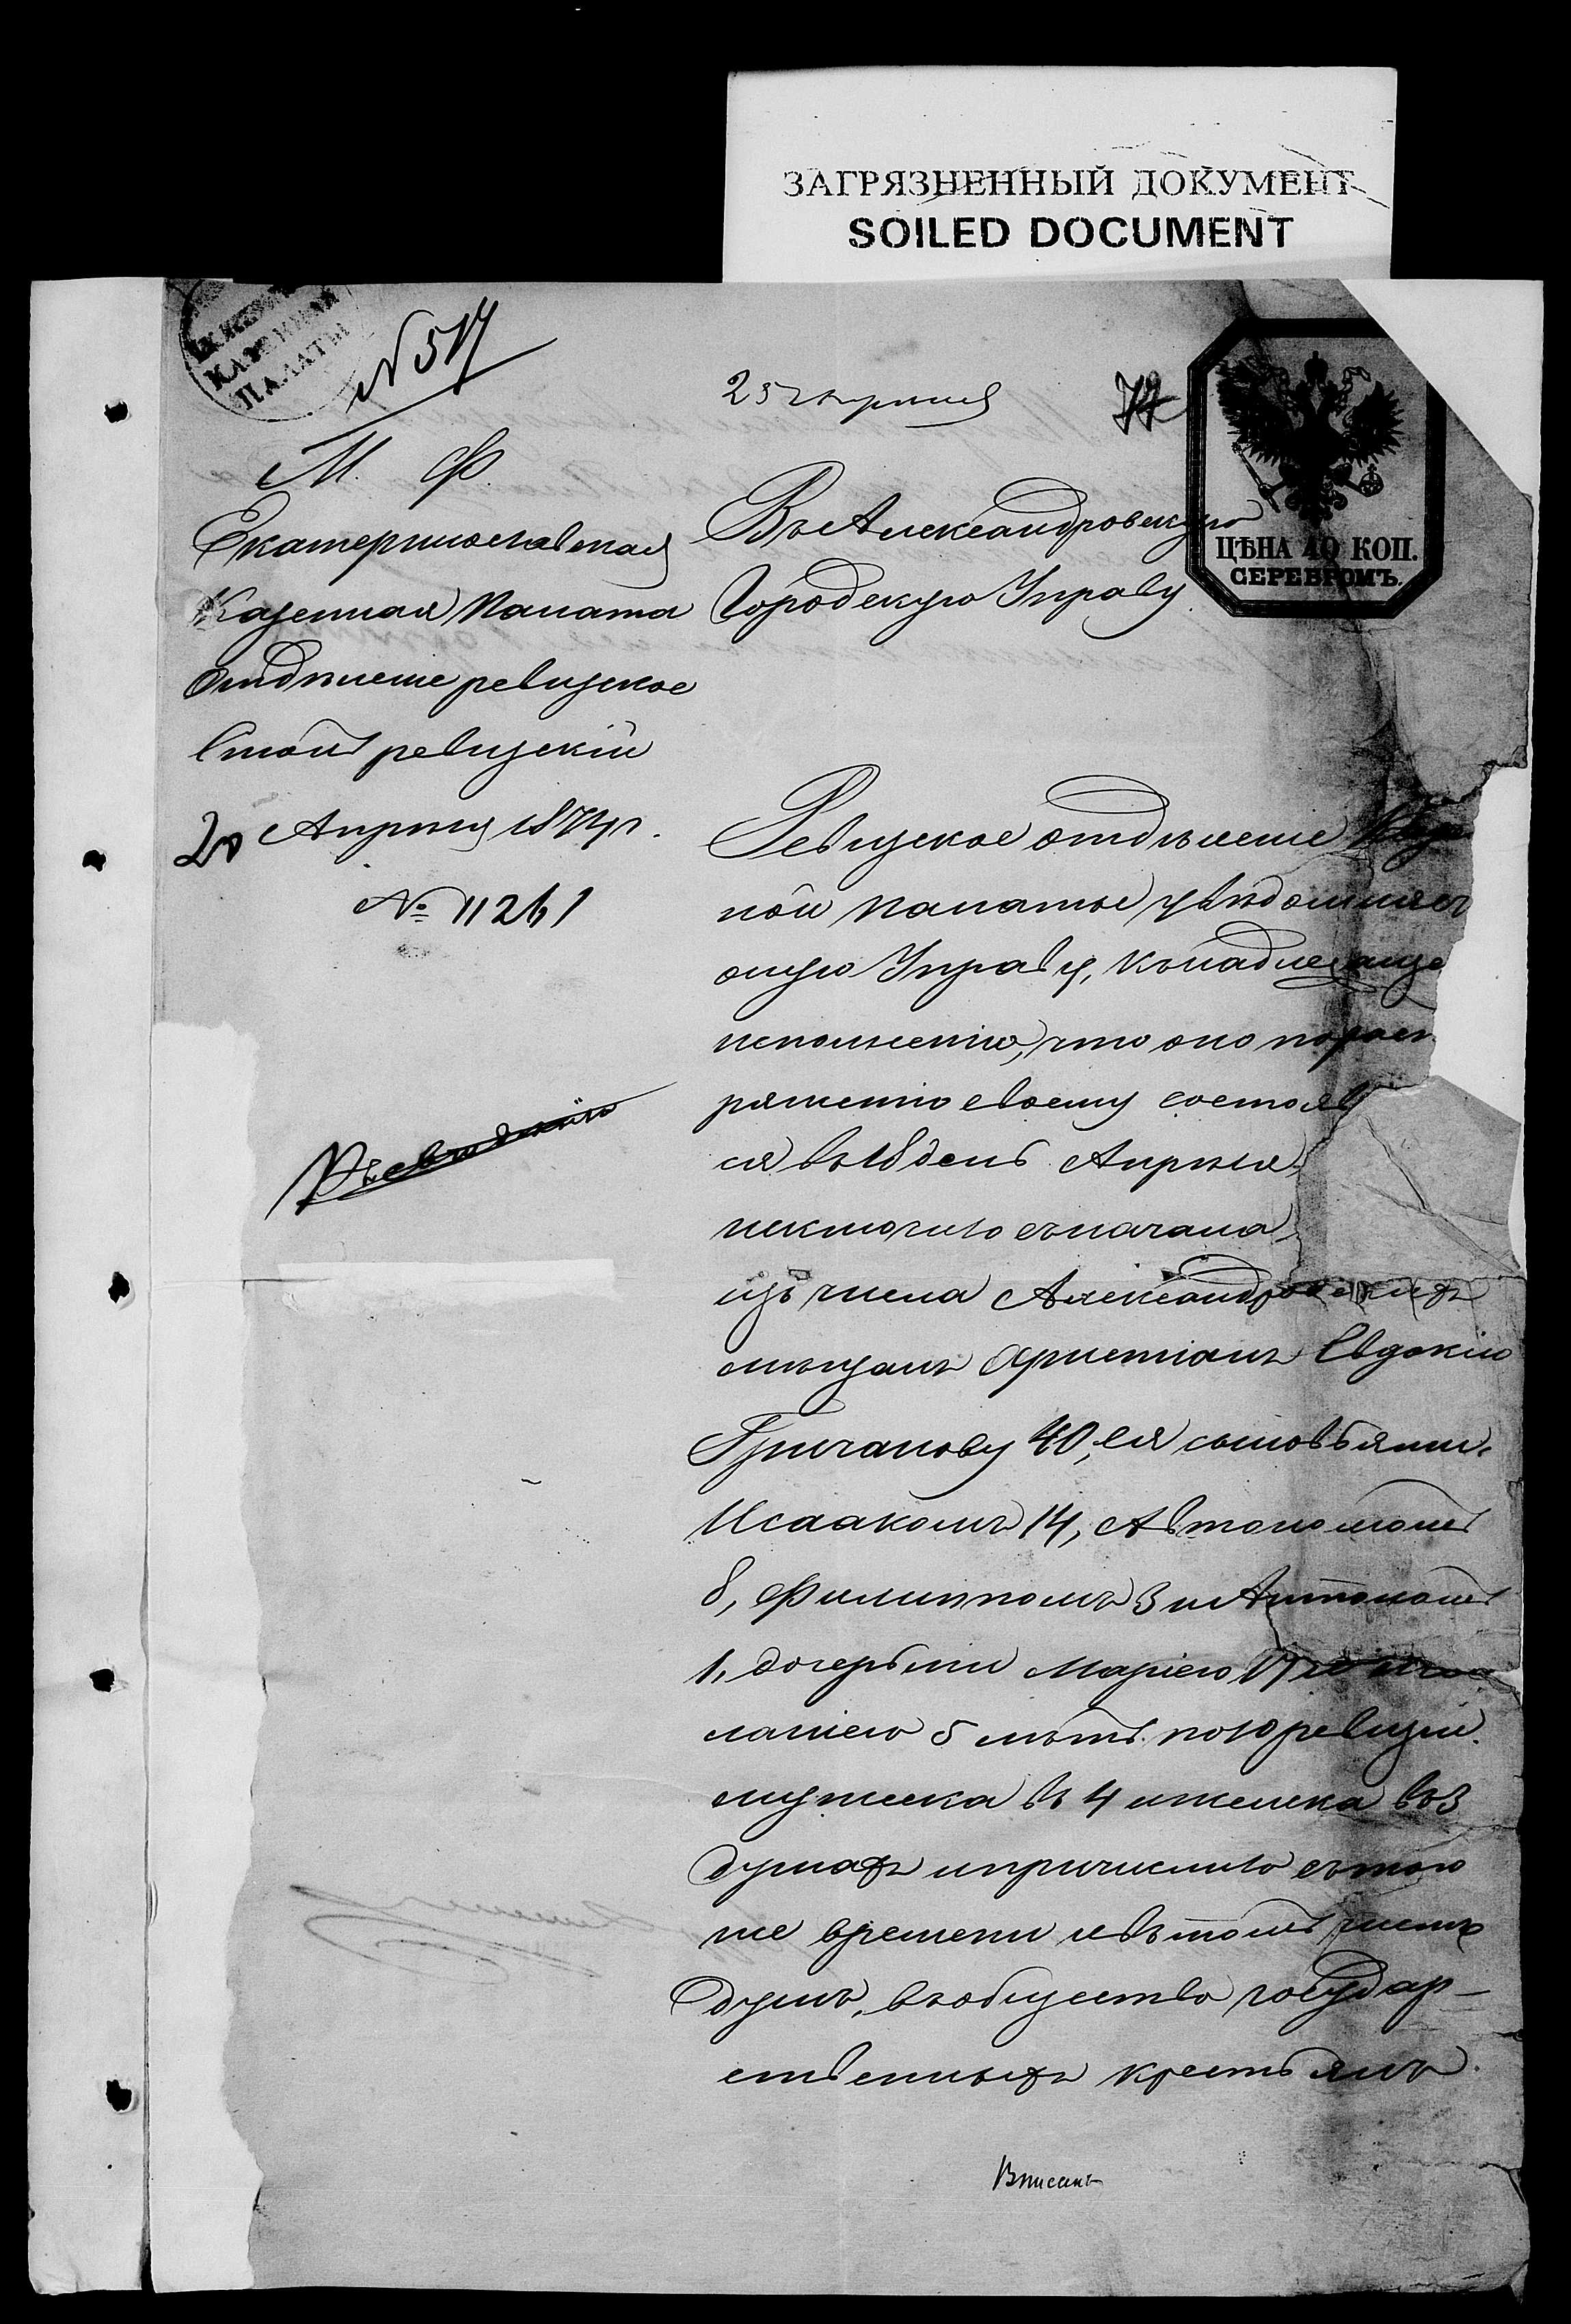 ЗАГРЯЗНЕННЫЙ ДОКУМЕНТ
SOILED DOCUMENT
КАЗЕННАЯ
ПАЛАТЫ
№ 517
25 Апреля
77
ЦѢНА 40 КОП.
СЕРЕБРОМЪ.
М. Ф.
Екатеринославская
Казенная Палата
Отдѣленіе ревизское
Столъ ревизскій
20 Апрѣля 1874 г.
№ 11261
Въ Александровскую
Городскую Управу
Ревизское отдѣленіе Казен
ной Палаты увѣдомляетъ
оную Управу, къ надлежаще
исполненію, что оно по расп
ряженію своему состояв
ся въ 18 день Апрѣля,
исключило съ начала
изъ числа Александровскихъ
мѣщанъ христіанъ Евдокію
Гричанову 40, ея сыновьями
Исаакомъ 14, Автономомъ
8, Филиппомъ 3 и Антономъ
1, дочерьми Маріею 17
ланіею 5 лѣтъ. по 10 ревизіи.
мужеска въ 4 и женска въ 3
душахъ и причислило съ того
же времени и въ томъ числѣ
душъ, въ общество государ-
ственныхъ крестьянъ
Вписанъ